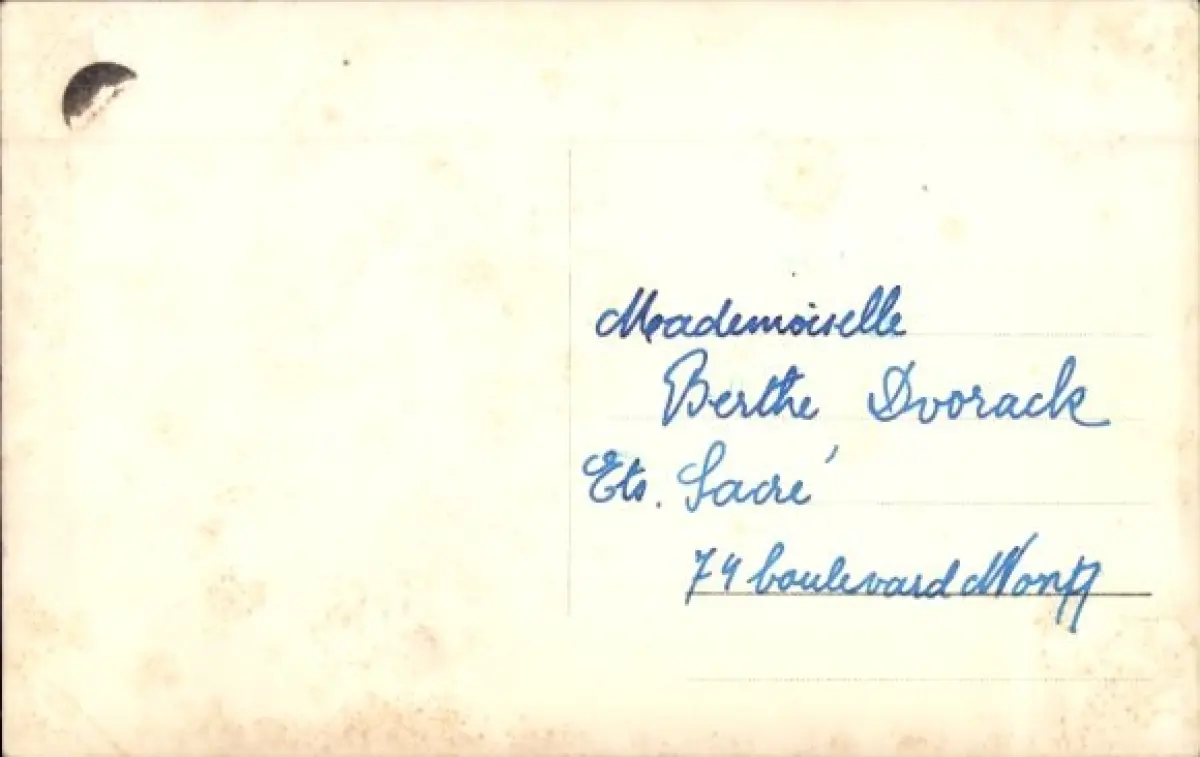 Mademoiselle
Berthe Dvorack
Ets. Sacré
74 boulevard